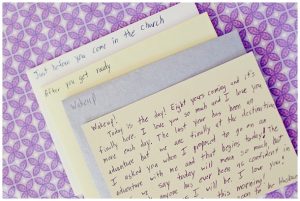 Just before you come in the church
After you get ready
Wakeup!
Wakeup!
Today is the day! Eight years coming and it's
finally here. I love you so much and I love you
more each day. The last year has been an
adventure but we are finally at the destination
I asked you when I prepared to go on an
adventure with me and that begins today! The
say today will mean so much but
been as confident in
anyone as I will be. I love you!
this morning
soon to be husband